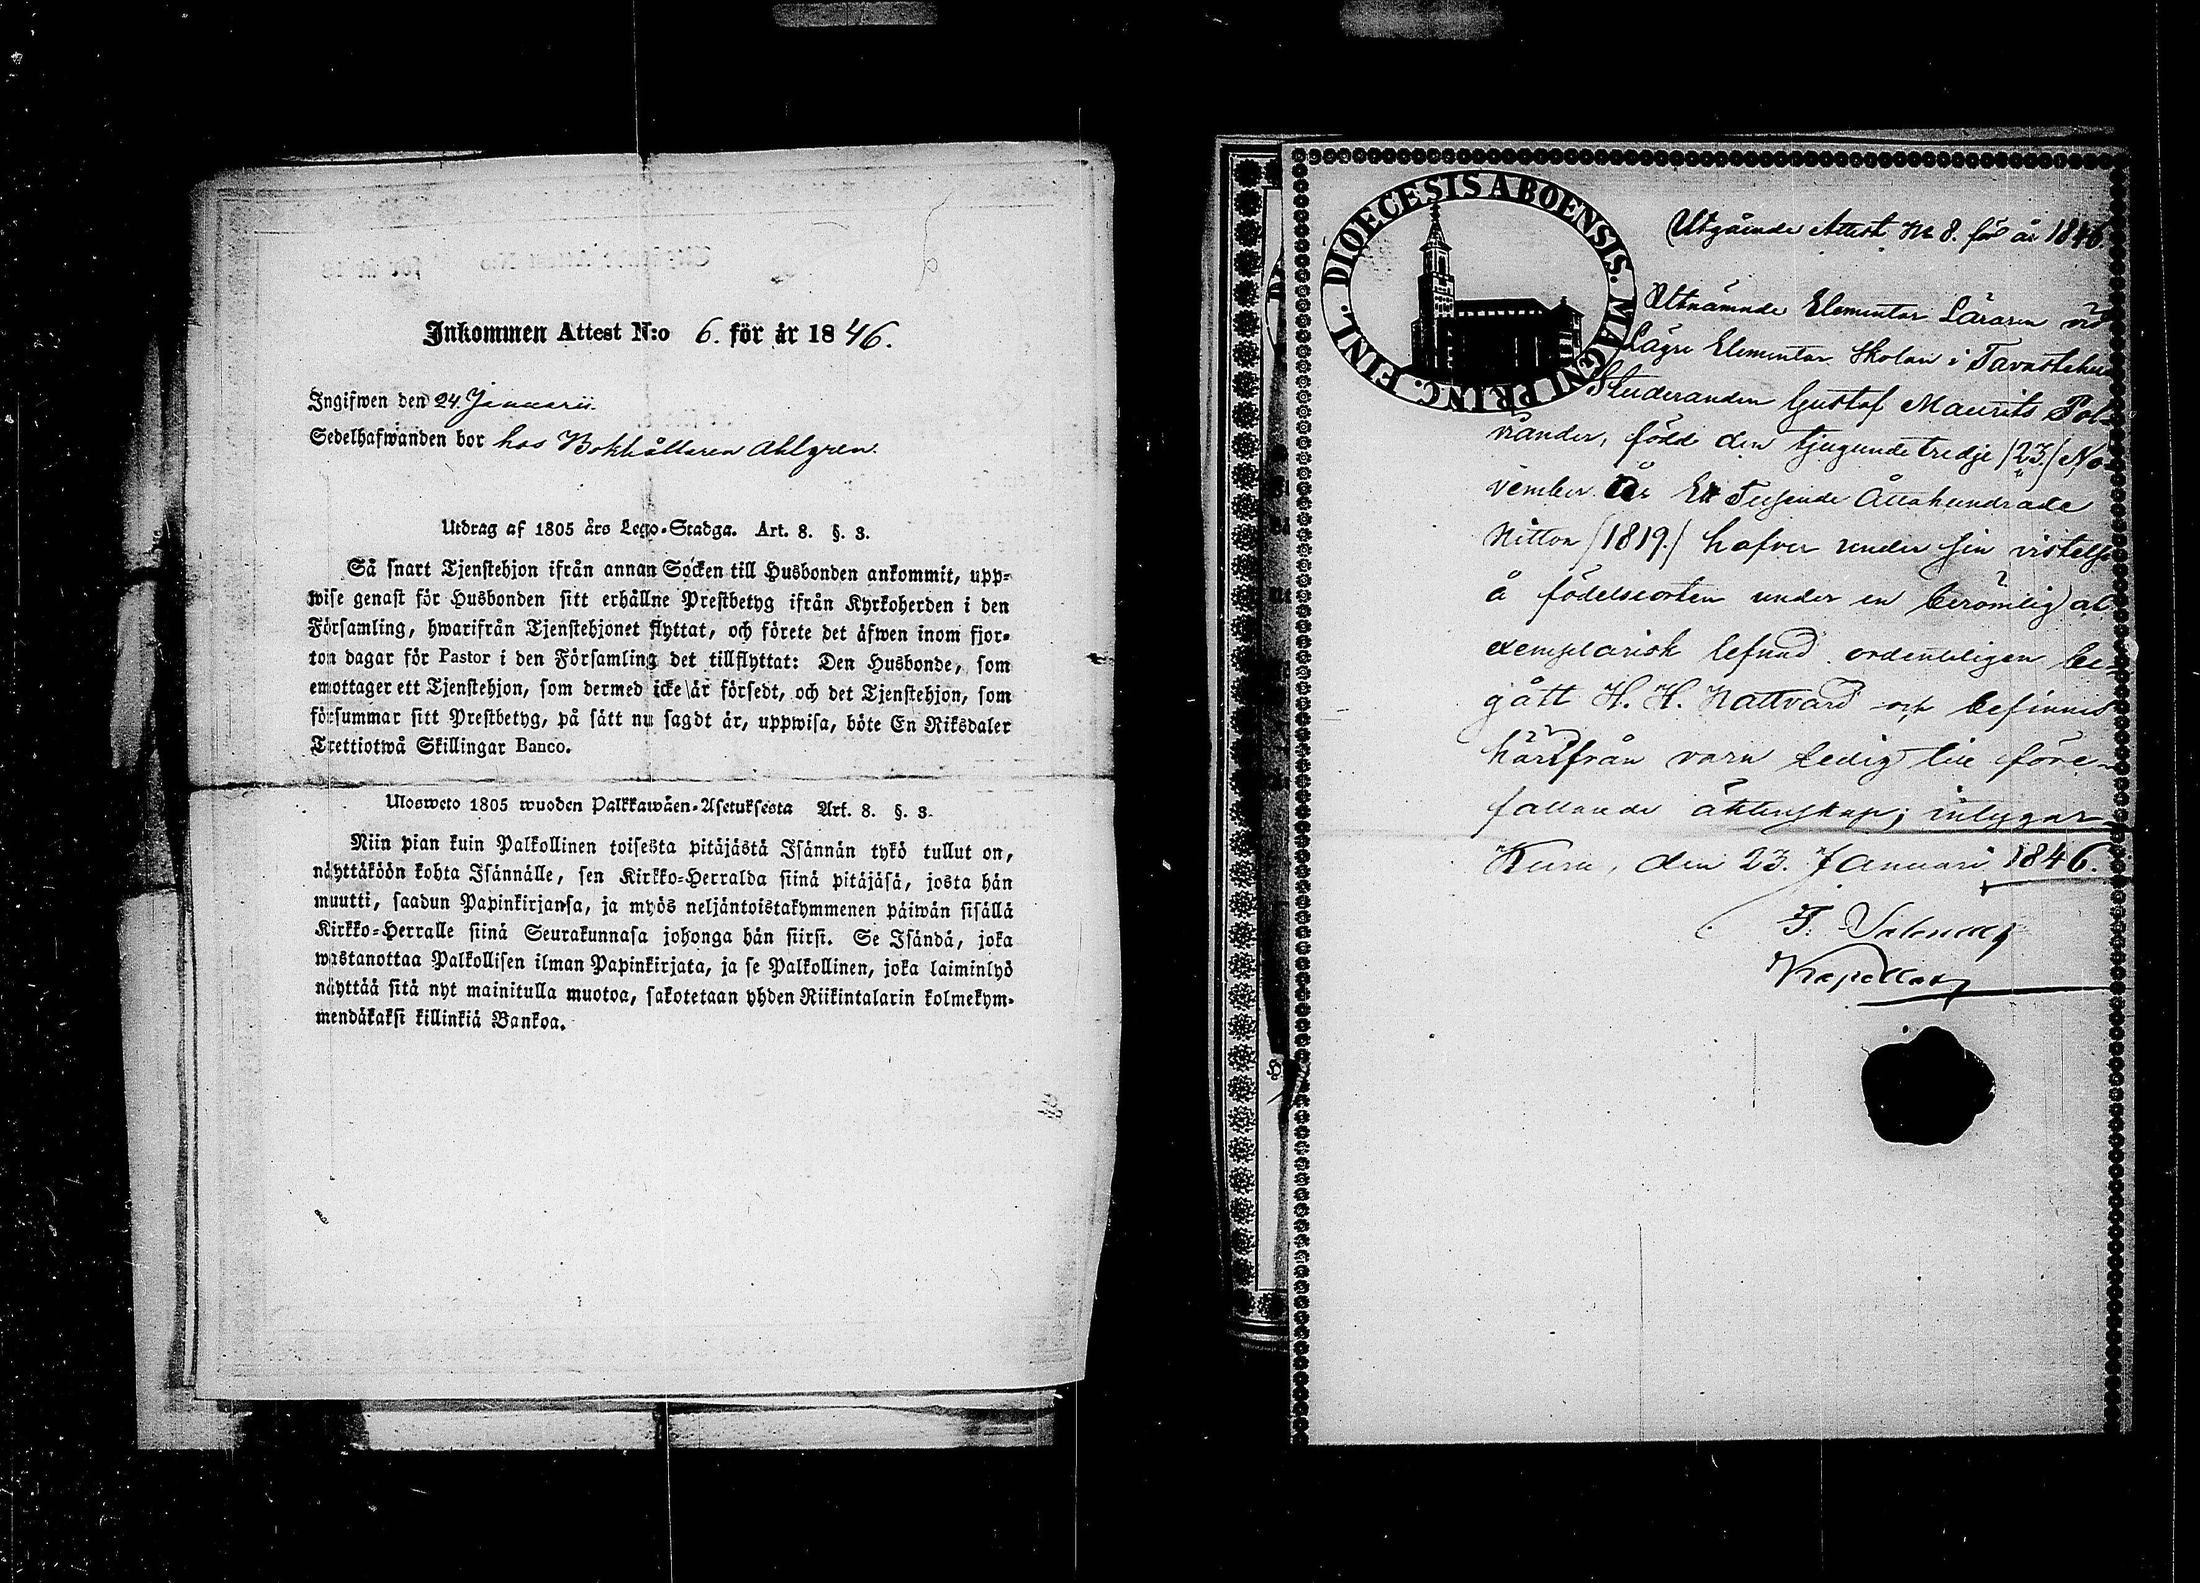 Inkommen Attest N:o 6. för år 1846.
Ingifwen den 24. Januarii.
Sedelhafwanden bor hos Bokhållaren Ahlgren.
Utdrag af 1805 års Lego-Stadga. Art. 8. §. 3.
Så snart Tjenstehjon ifrån annan Socken till Husbonden ankommit, upp-
wise genast för Husbonden sitt erhållne Prestbetyg ifrån Kyrkoherden i den
Församling, hwarifrån Tjenstehjonet flyttat, och förete det äfwen inom fjor-
ton dagar för Pastor i den Församling det tillflyttat: Den Husbonde, som
emottager ett Tjenstehjon, som dermed icke är försedt, och det Tjenstehjon, som
försummar sitt Prestbetyg, på sätt nu sagdt är, uppwisa, böte En Riksdaler
Trettiotwå Skillingar Banco.
Ulosweto 1805 wuoden Palkkawäen-Asetuksesta Art. 8. §. 3.
Niin pian kuin Palkollinen toisesta pitäjästä Isännän tykö tullut on,
näyttäköön kohta Isännälle, sen Kirkko-Herralda siinä pitäjäsä, josta hän
muutti, saadun Papinkirjansa, ja myös neljäntoistakymmenen päiwän sisällä
Kirkko-Herralle siinä Seurakunnasa johonga hän siirsi. Se Isändä, joka
wastanottaa Palkollisen ilman Papinkirjata, ja se Palkollinen, joka laiminlyö
näyttää sitä nyt mainitulla muotoa, sakotetaan yhden Riikintalarin kolmekym-
mendäkaksi killinkiä Bankoa.
DIOECESIS ABOENSIS. MAGNI PRINC. FINL.
Utgående Attest No 8. för år 1846.
Utnämnde Elementar Läraren vid
Lägre Elementar Skolan i Tavastehus
Studeranden Gustaf Maurits Pol-
viander, född den tjugundetredje /23./ No-
vember År Ett Tusende Åttahundrade
Nitton /1819./ hafver under sin vistelse
å födelseorten under en berömlig och
exemplarisk lefnad ordentligen be-
gått H. H. Nattvard och befinnes
härifrån vara ledig till före-
fallande äktenskap; intygar
Kuru, den 23. Januari 1846.
Kapellan